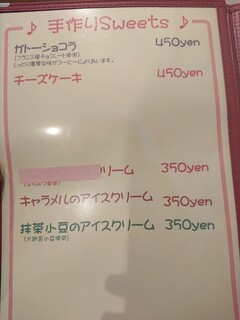 ♪ 手作りSweets ♪
ガトーショコラ 450yen
(フランス産チョコレート使用)
しっとり濃厚な味がコーヒーによくあいます。
チーズケーキ 450yen
クリーム 350yen
キャラメルのアイスクリーム 350yen
抹茶小豆のアイスクリーム 350yen
(大納言小豆使用)